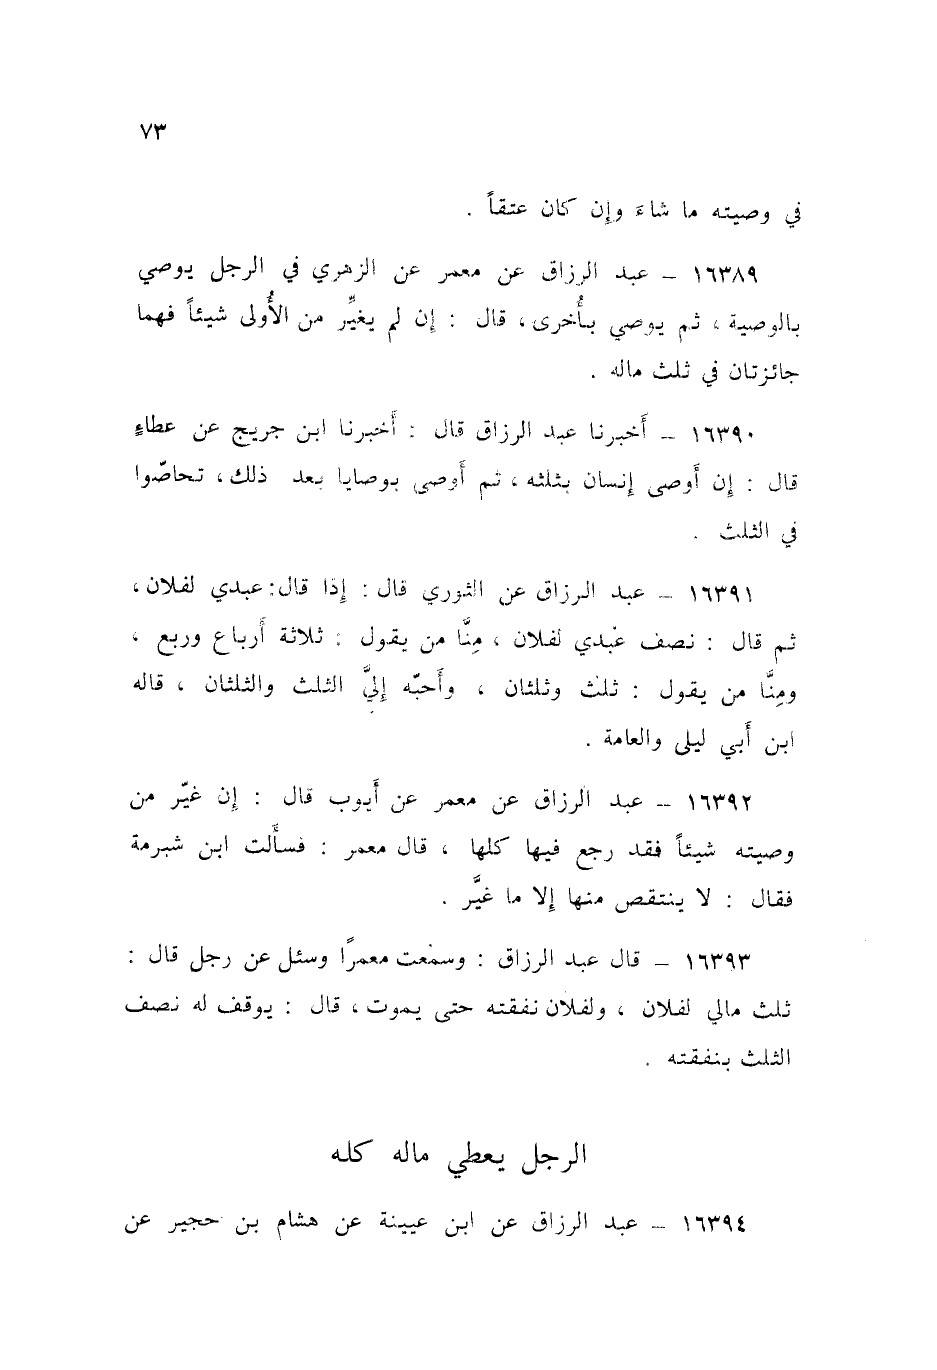 ٧٣
في وصيته ما شاءَ وإن كان عتقاً .
١٦٣٨٩ – عبد الرزاق عن معمر عن الزهري في الرجل يوصي
بالوصية ، ثم يوصي بأُخرى ، قال : إن لم يغيِّر من الأُولى شيئاً فهما
جائزتان في ثلث ماله .
١٦٣٩٠ – أَخبرنا عبد الرزاق قال : أَخبرنا ابن جريج عن عطاءٍ
قال : إن أَوصى إنسان بثلثه ، ثم أَوصى بوصايا بعد ذلك ، تحاصّوا
في الثلث .
١٦٣٩١ – عبد الرزاق عن الثوري قال : إذا قال : عبدي لفلان ،
ثم قال : نصف عبدي لفلان ، مِنَّا من يقول : ثلاثة أَرباع وربع ،
ومِنَّا من يقول : ثلث وثلثان ، وأَحبّه إليَّ الثلث والثلثان ، قاله
ابن أَبي ليلى والعامة .
١٦٣٩٢ – عبد الرزاق عن معمر عن أَيوب قال : إن غيّر من
وصيته شيئاً فقد رجع فيها كلها ، قال معمر : فسأَلت ابن شبرمة
فقال : لا ينتقص منها إلا ما غيَّر .
١٦٣٩٣ – قال عبد الرزاق : وسمعت معمرًا وسئل عن رجل قال :
ثلث مالي لفلان ، ولفلان نفقته حتى يموت ، قال : يوقف له نصف
الثلث بنفقته .
الرجل يعطي ماله كله
١٦٣٩٤ – عبد الرزاق عن ابن عيينة عن هشام بن حجير عن